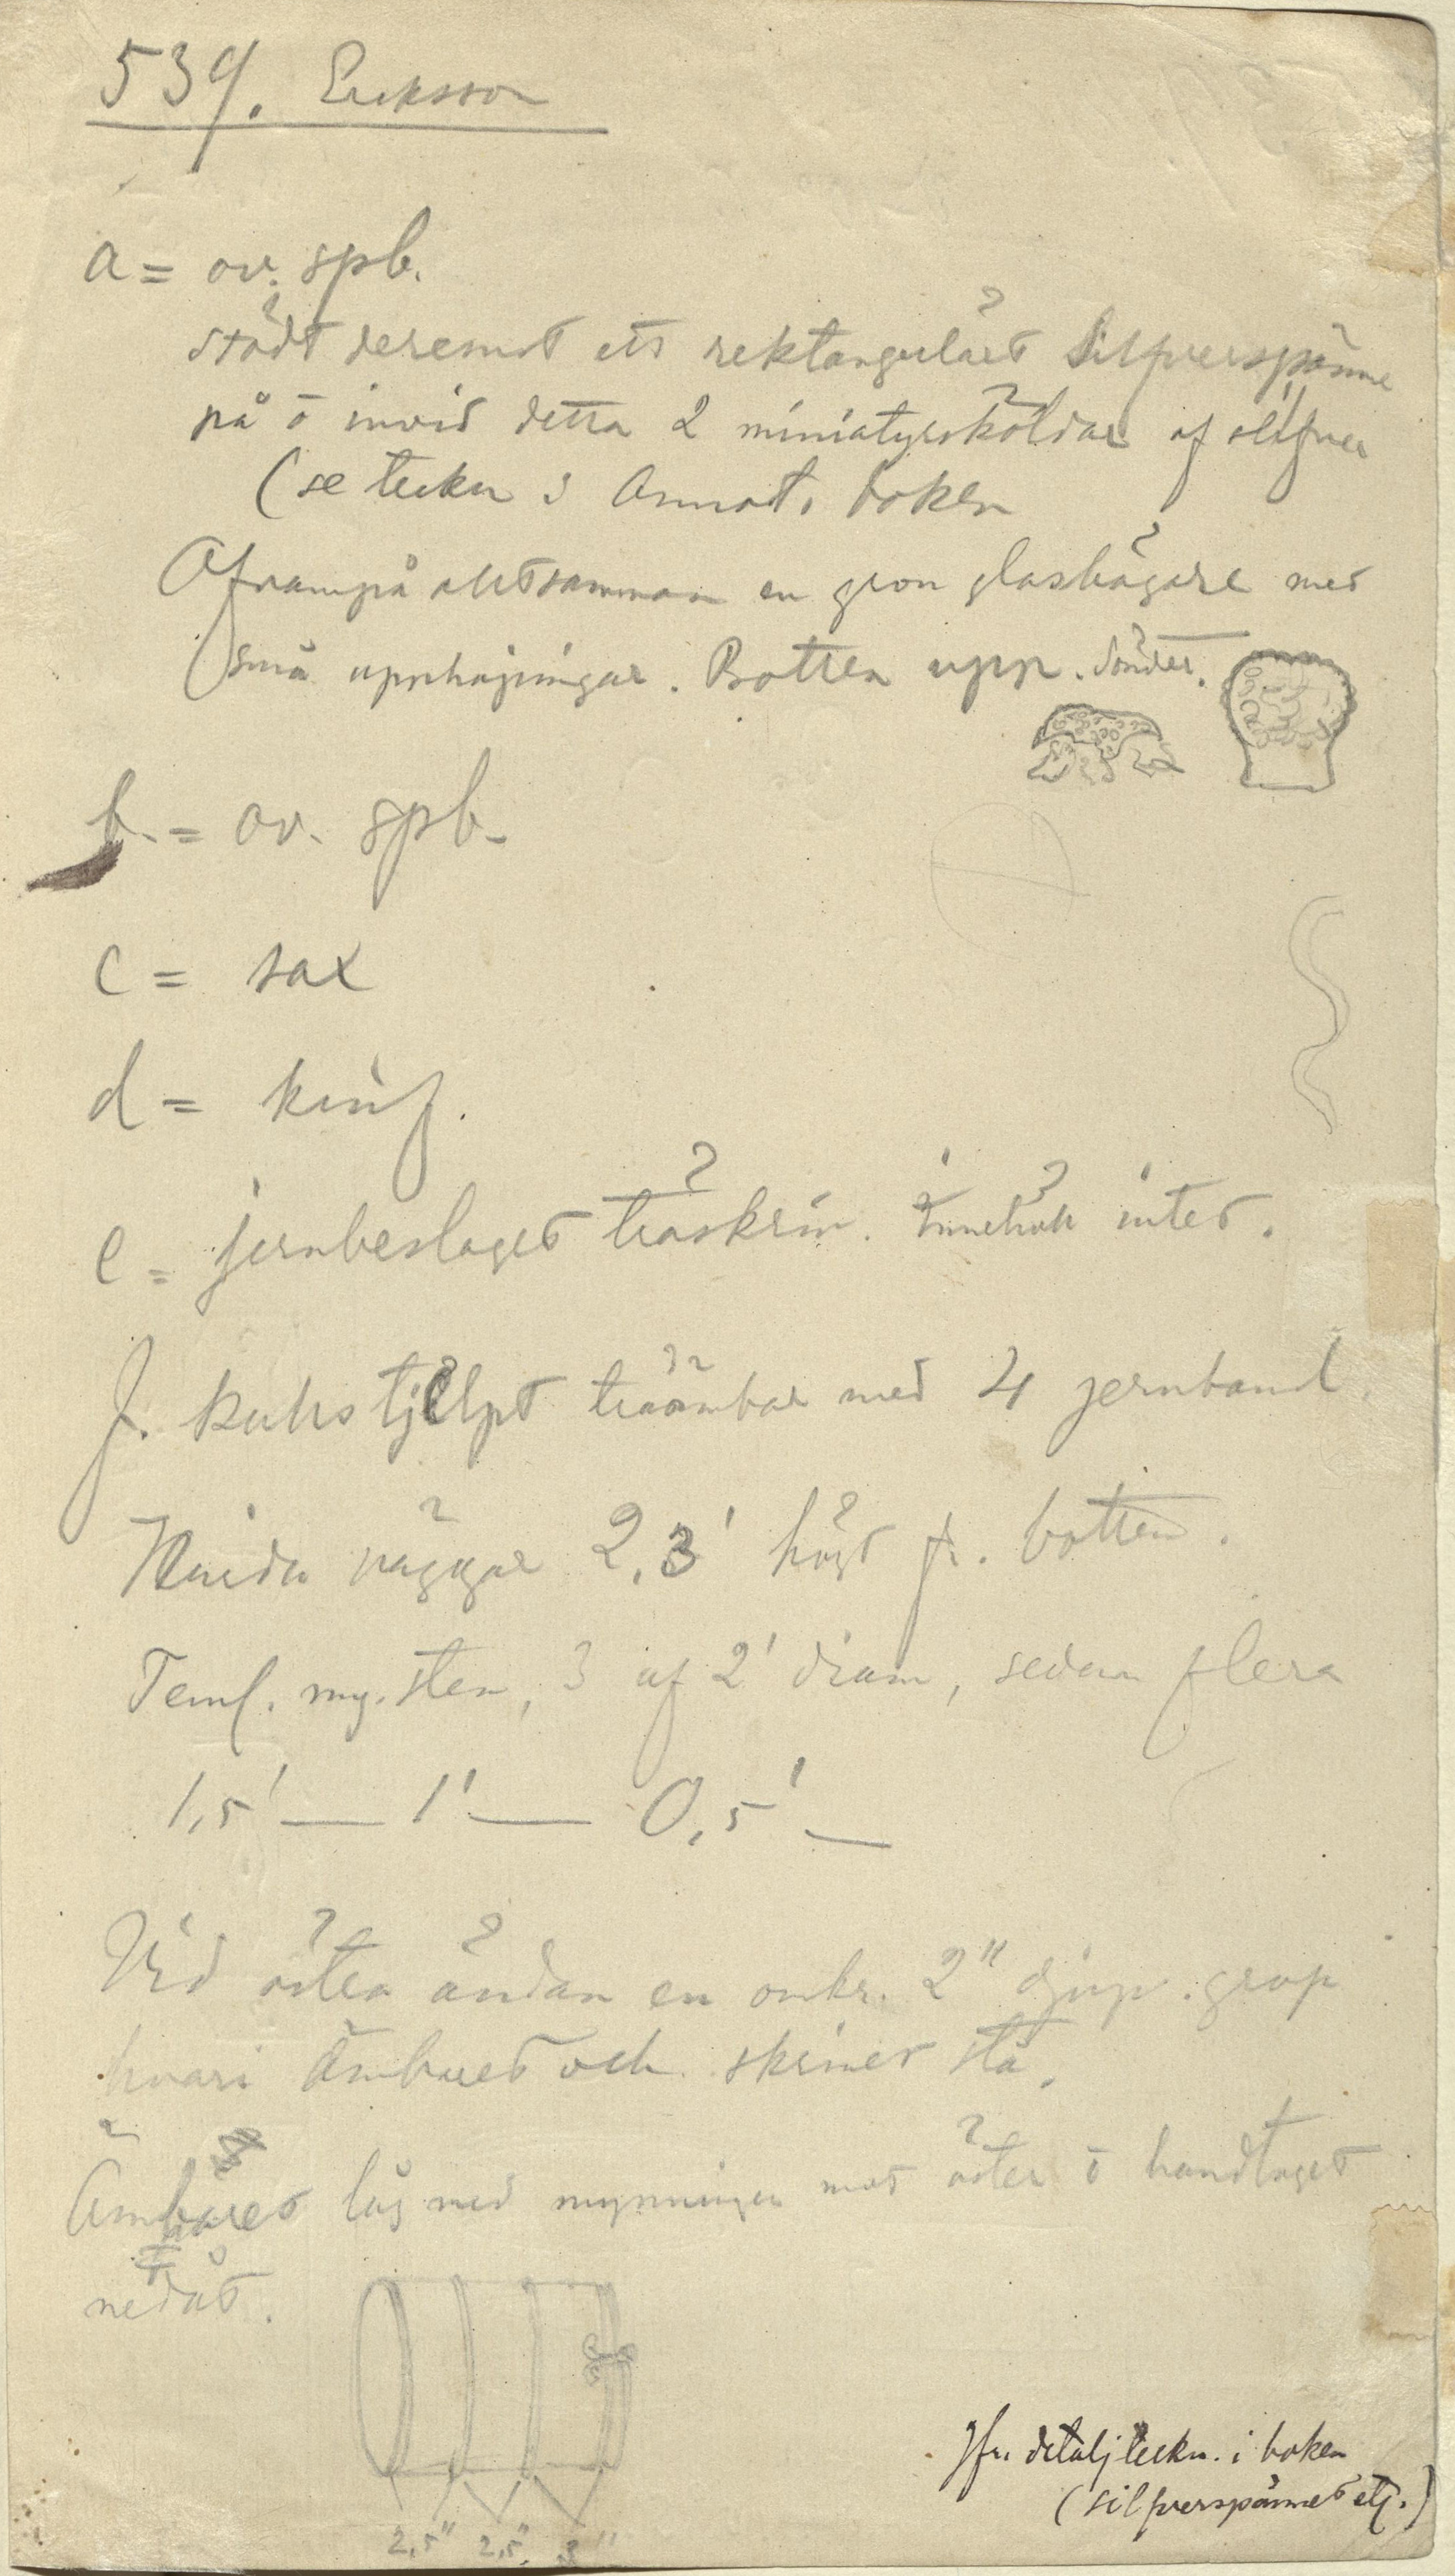 539. Eriksson
a = ov. spb.
stödt deremot ett rektangulärt silfverspänne
på o invid detta 2 miniatyrsköldar af silfver
(se teckn i Annot. boken
Ofvanpå alltsamman en grön glasbägare med
små upphöjningar. Botten upp. Sönder.
b. = ov. spb.
c = sax
d = knif.
e = jernbeslaget träskrin. innehöll intet.
f. kullstjelpt träämbar med 4 jernband.
väggar 2,3' högt fr. botten.
my. sten, 3 af 2' diam, sedan flera
1,5' — 1' — 0,5' —
Vid östra ändan en omkr. 2" djup. grop
hvari ämbaret och skrinet stå.
Ämbaret låg med mynningen mot öster o handtaget
nedåt.
2,5" 2,5" 3"
Jfr. detaljteckn. i boken
(silfverspännet etc.)